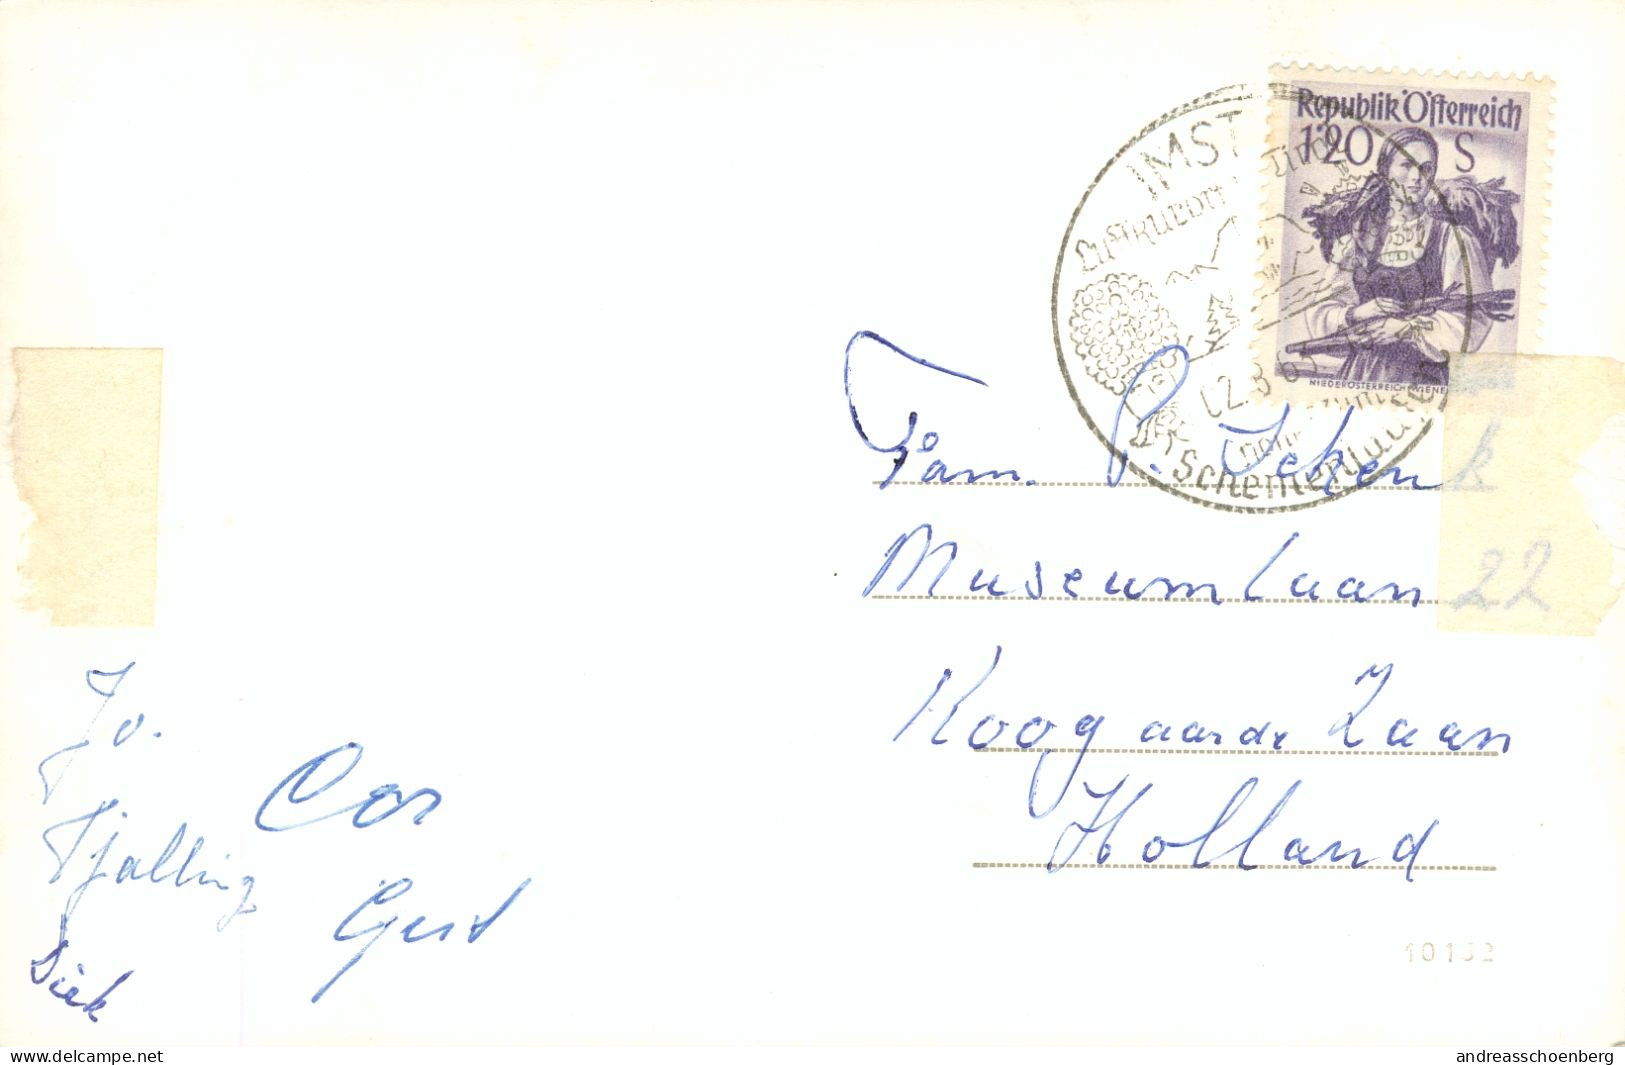 Republik Österreich
1'20 S
NIEDERÖSTERREICH, WIENE
IMST
Luftkurort Tirol
Schemenlaufen
Fam. P.
Museumlaan 22
Koog aan de Zaan
Holland
Jo.
Cor
Tjalling
Gert
Diek
10152
www.delcampe.net
andreasschoenberg